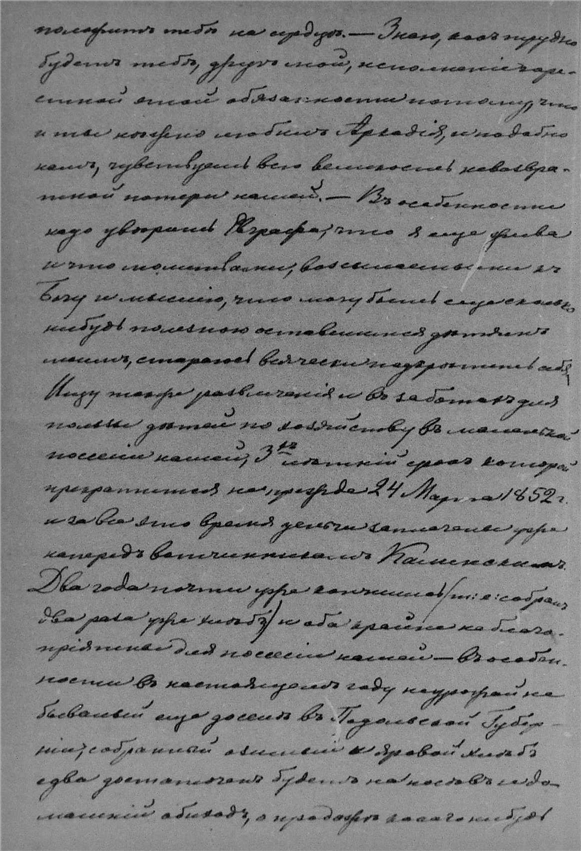 положитъ тебѣ на сердце. — Знаю, какъ трудно
будетъ тебѣ, другъ мой, исполненіе горе-
стной этой обязанности потому, что
и ты нѣжно любилъ Аркадія, и подобно
намъ, чувствуешь всю великость невозвра-
тной потери нашей. — Въ особенности
надо увѣрить Евграфа, что я еще жива
и что молитвами, возсылаемыми къ
Богу и мыслію, что могу быть еще сколько
нибудь полезною оставшимся дѣтямъ
моимъ, стараюсь всячески подкрѣпить себя
Ищу также развлеченія и въ заботахъ для
пользы дѣтей по хозяйству въ маленькой
поссесіи нашей, 3хъ лѣтній срокъ которой
прекратится не прежде 24 Марта 1852 г.
и за все это время деньги заплочены уже
напередъ вотчинникамъ
Два года почти уже кончились (т: е: собранъ
два раза уже хлѣбъ) и оба крайне не благо-
пріятны для поссесіи нашей — въ особен-
ности въ настоящемъ году неурожай не
бывалый еще доселѣ въ Подольской Губер-
ніи; собранный озимый и яровой хлѣбъ
едва достаточенъ будетъ на посѣвъ и до-
машній обиходъ, о продажѣ какого нибудь